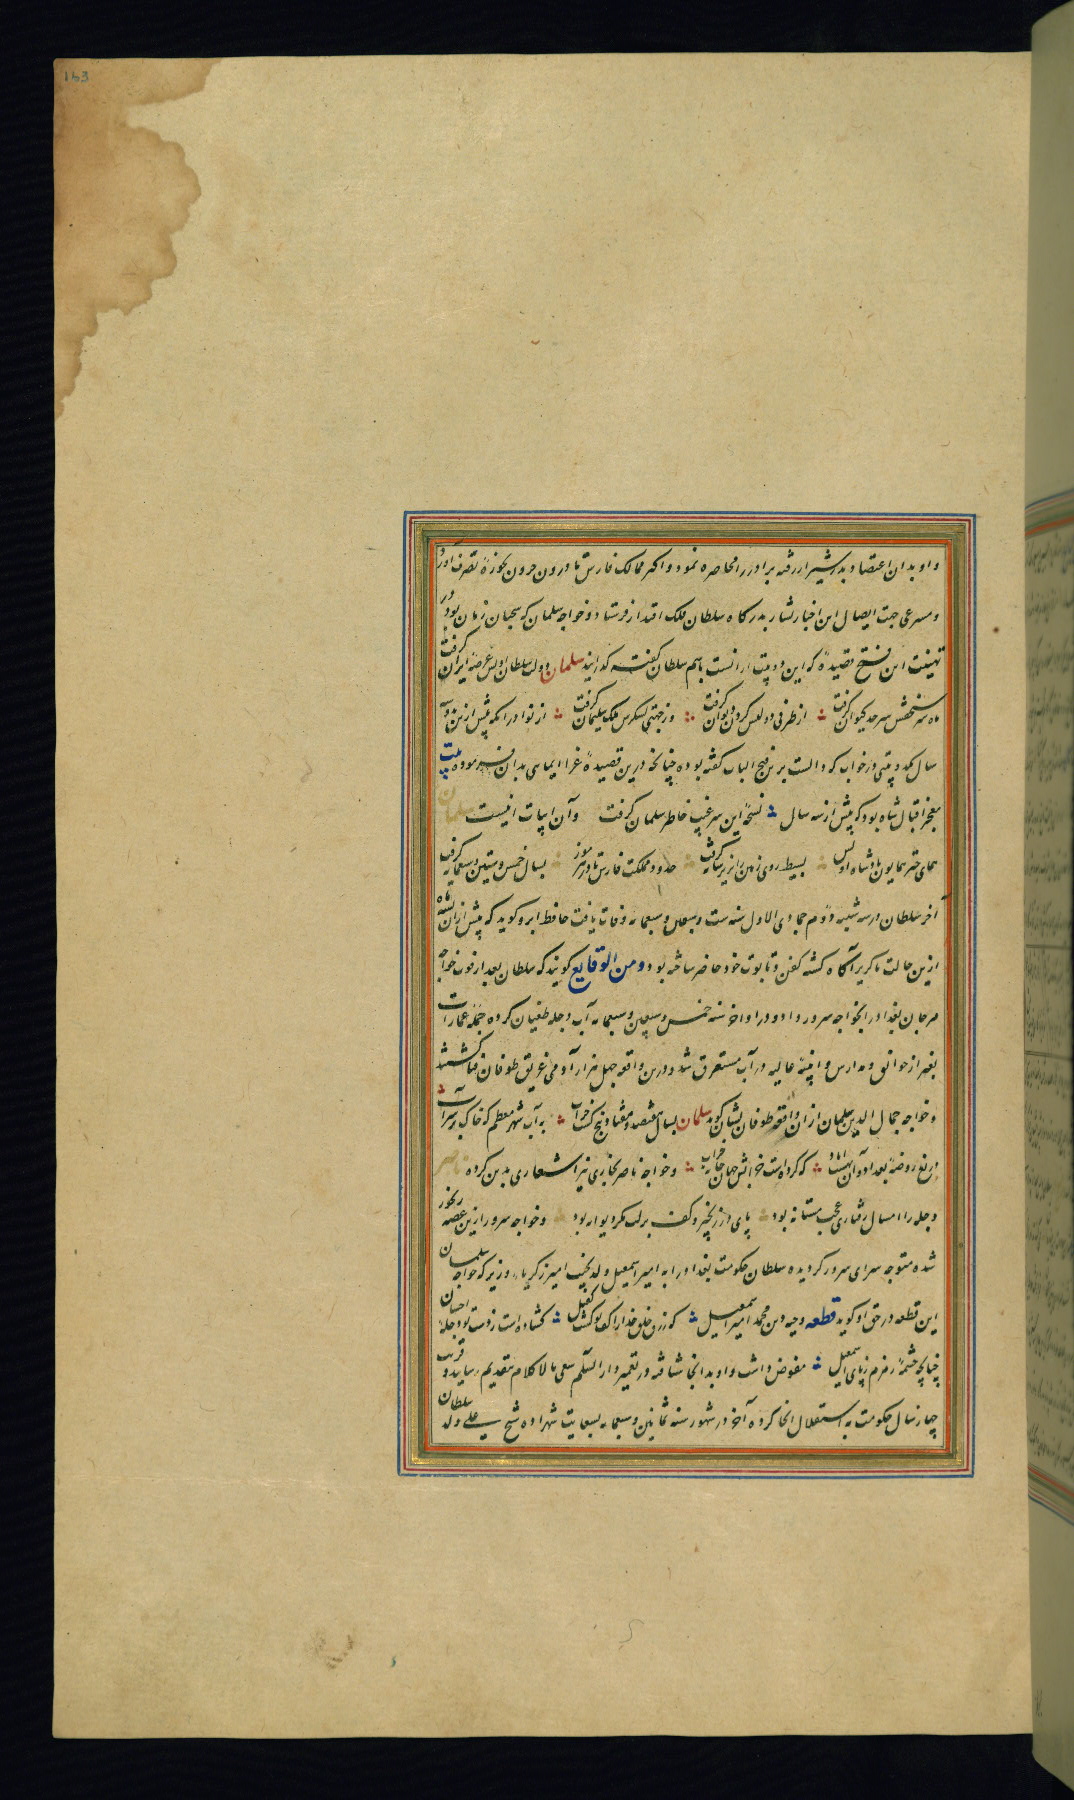 163
و او بدان اعتضاد بدر شیراز رفته برادر را محاصره نمود و اکثر ممالک فارس تا درون جرون بحوزهٔ تصرف آورد
و مسرعی جهت ایصال این اخبار بشارت بدرگاه سلطان فلک اقتدار فرستاد و خواجه سلمان که سحبان زمان بود در
تهنیت این فتح قصیدهٔ که این دو بیت از انست باسم سلطان گفته گذرانید سلمان دولت سلطان اویس عرصهٔ ایران گرفت
ماه سر سنجقش سرحد کیوان گرفت از طرفی دولتش گردن دیوان گرفت وز جهتی لشکرش ملک سلیمان گرفت از نوادر آنکه پیش ازین بسه
سال یکدو بیتی در خواب که دالست برین فتح الباب گفته بوده چنانچه درین قصیدهٔ غرا ایمایی بدان فرموده بیت
معجز اقبال شاه بود که پیش از سه سال نسخهٔ این سر غیب خاطر سلمان گرفت و آن ابیات اینست سلمان
همای چتر همایون پادشاه اویس بسیط روی زمین را بزیر سایه گرفت حدود مملکت فارس تا در هرموز بسال خمس و ستین و سبعمایه گرفت
آخر سلطان در سه شنبه دوم جمادی الاول سنه ست و سبعین و سبعمایه وفات یافت حافظ ابرو گوید که پیش از آن بسه ماه
ازین حالت ناگزیر آگاه گشته کفن و تابوت خود حاضر ساخته بود و من الوقایع گویند که سلطان بعد از فوت خواجه
مرجان بغداد را بخواجه سرور داد و در اواخر سنه خمس و سبعین و سبعمایه آب دجله طغیان کرده جمله عمارات
بغیر از خوانق و مدارس و ابنیهٔ عالیه در آب مستغرق شد و درین واقعه چهل هزار آدمی غریق طوفان فنا گشتند
و خواجه جمال الدین سلمان از آن واقعه طوفان نشان گوید سلمان بسال هفتصد و هفتاد و پنج گشت خراب به آب شهر معظم که خاک بر سر آب
دریغ روضهٔ بغداد آن بهشت آباد که کرده است خرابش جهان خانه خراب و خواجه ناصر بخاری نیز اشعاری بدین کرده ناصر
دجله را امسال رفتاری عجب مستانه بود پای در زنجیر و کف بر لب مگر دیوانه بود و خواجه سرور ازین غصه رنجور
شده متوجه سرای سرور گردیده سلطان حکومت بغداد را به امیر اسمعیل ولد نجیب امیر زکریاء وزیر که خواجه سلمان
این قطعه در حق او گوید قطعه وجیه دین محمد امیر اسمعیل که رزق خلق خدا را کف تو گشت کفیل گشاده است ز دست تو دجلهٔ احسان
چنانچه چشمهٔ زمزم ز پای اسمعیل مفوض داشت و او بدانجا شتافته در تعمیر دار السلم سعی مالاکلام بتقدیم رسانید و قریب
چهار سال حکومت به استقلال آنجا کرده آخر در شهور سنه ثمانین و سبعمایه بسعایت شهزاده شیخ علی ولد سلطان